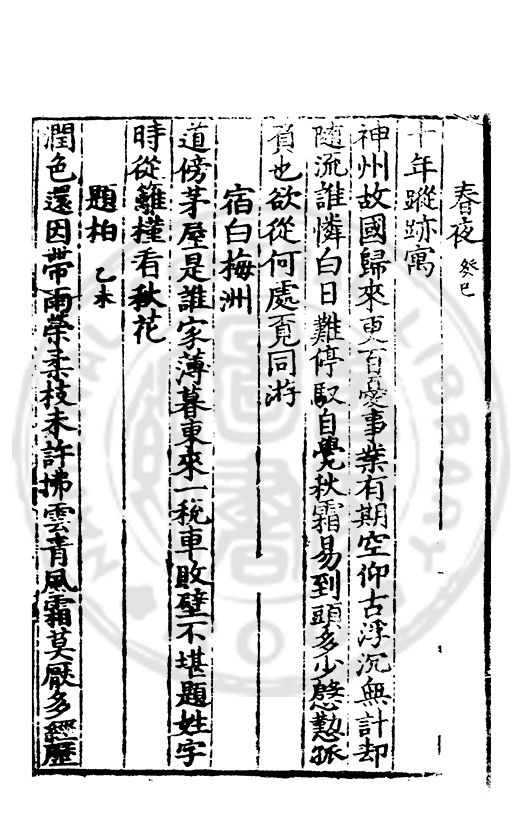 春夜 癸巳
十年蹤跡寓
神州故國歸來更百憂事業有期空仰古浮沉無計却
隨流誰憐白日難停馭自覺秋霜易到頭多少慇懃孤
負也欲從何處覓同游
宿白梅洲
道傍茅屋是誰家薄暮東來一稅車敗壁不堪題姓字
時從籬槿看秋花
題柏 乙未
潤色還因帶雨榮柔枝未許拂雲青風霜莫厭多經歷